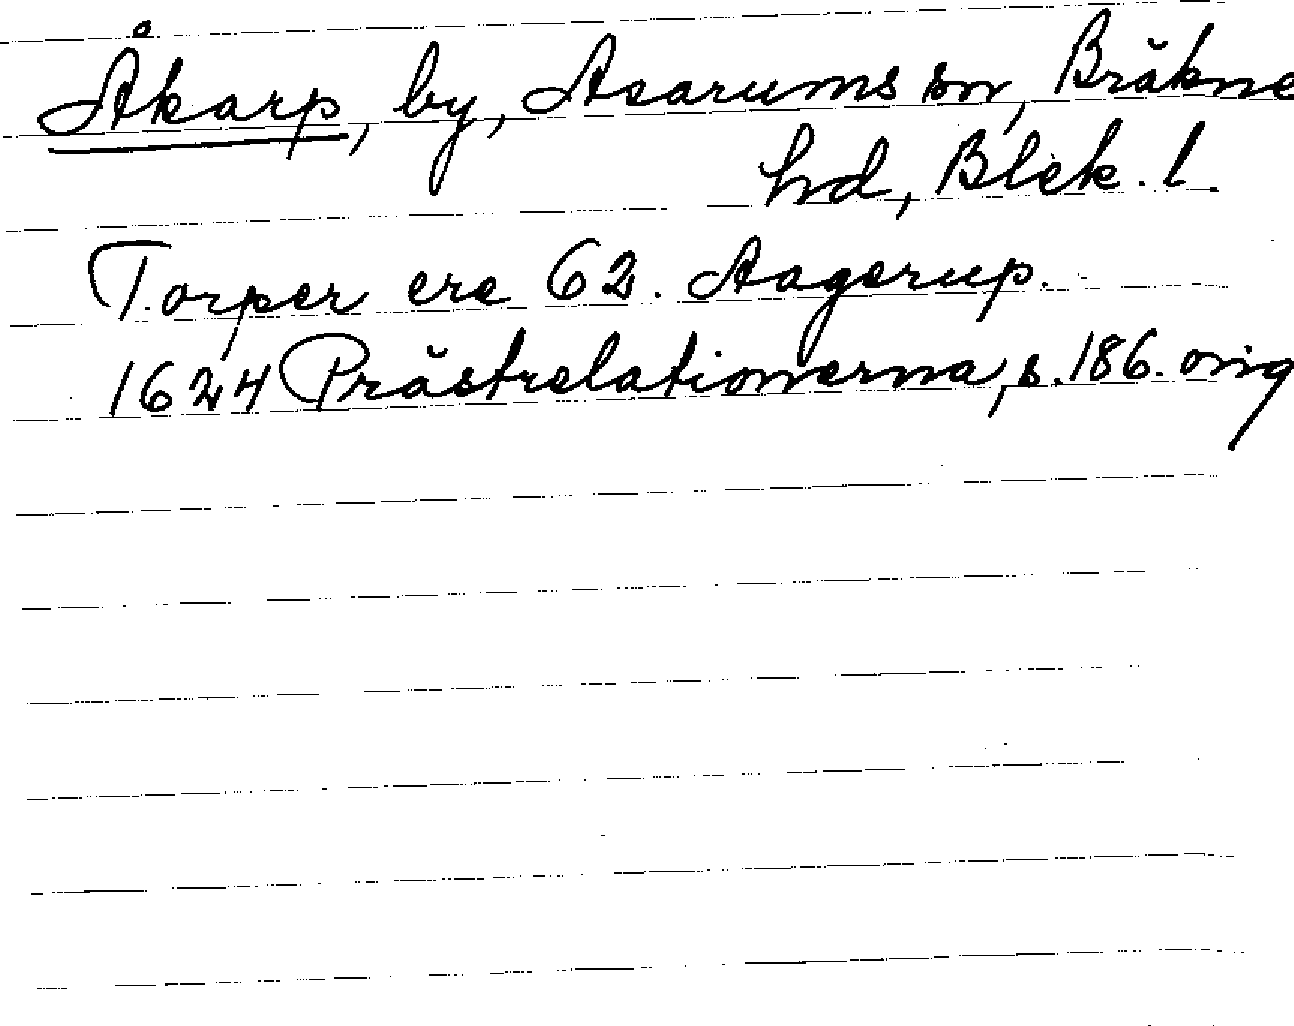 Åkarp, by, Asarums sn, Bräkne
hd, Blek. l.
Torper ere 62. Aagerup.
1624 Prästrelationerna, s. 186. orig